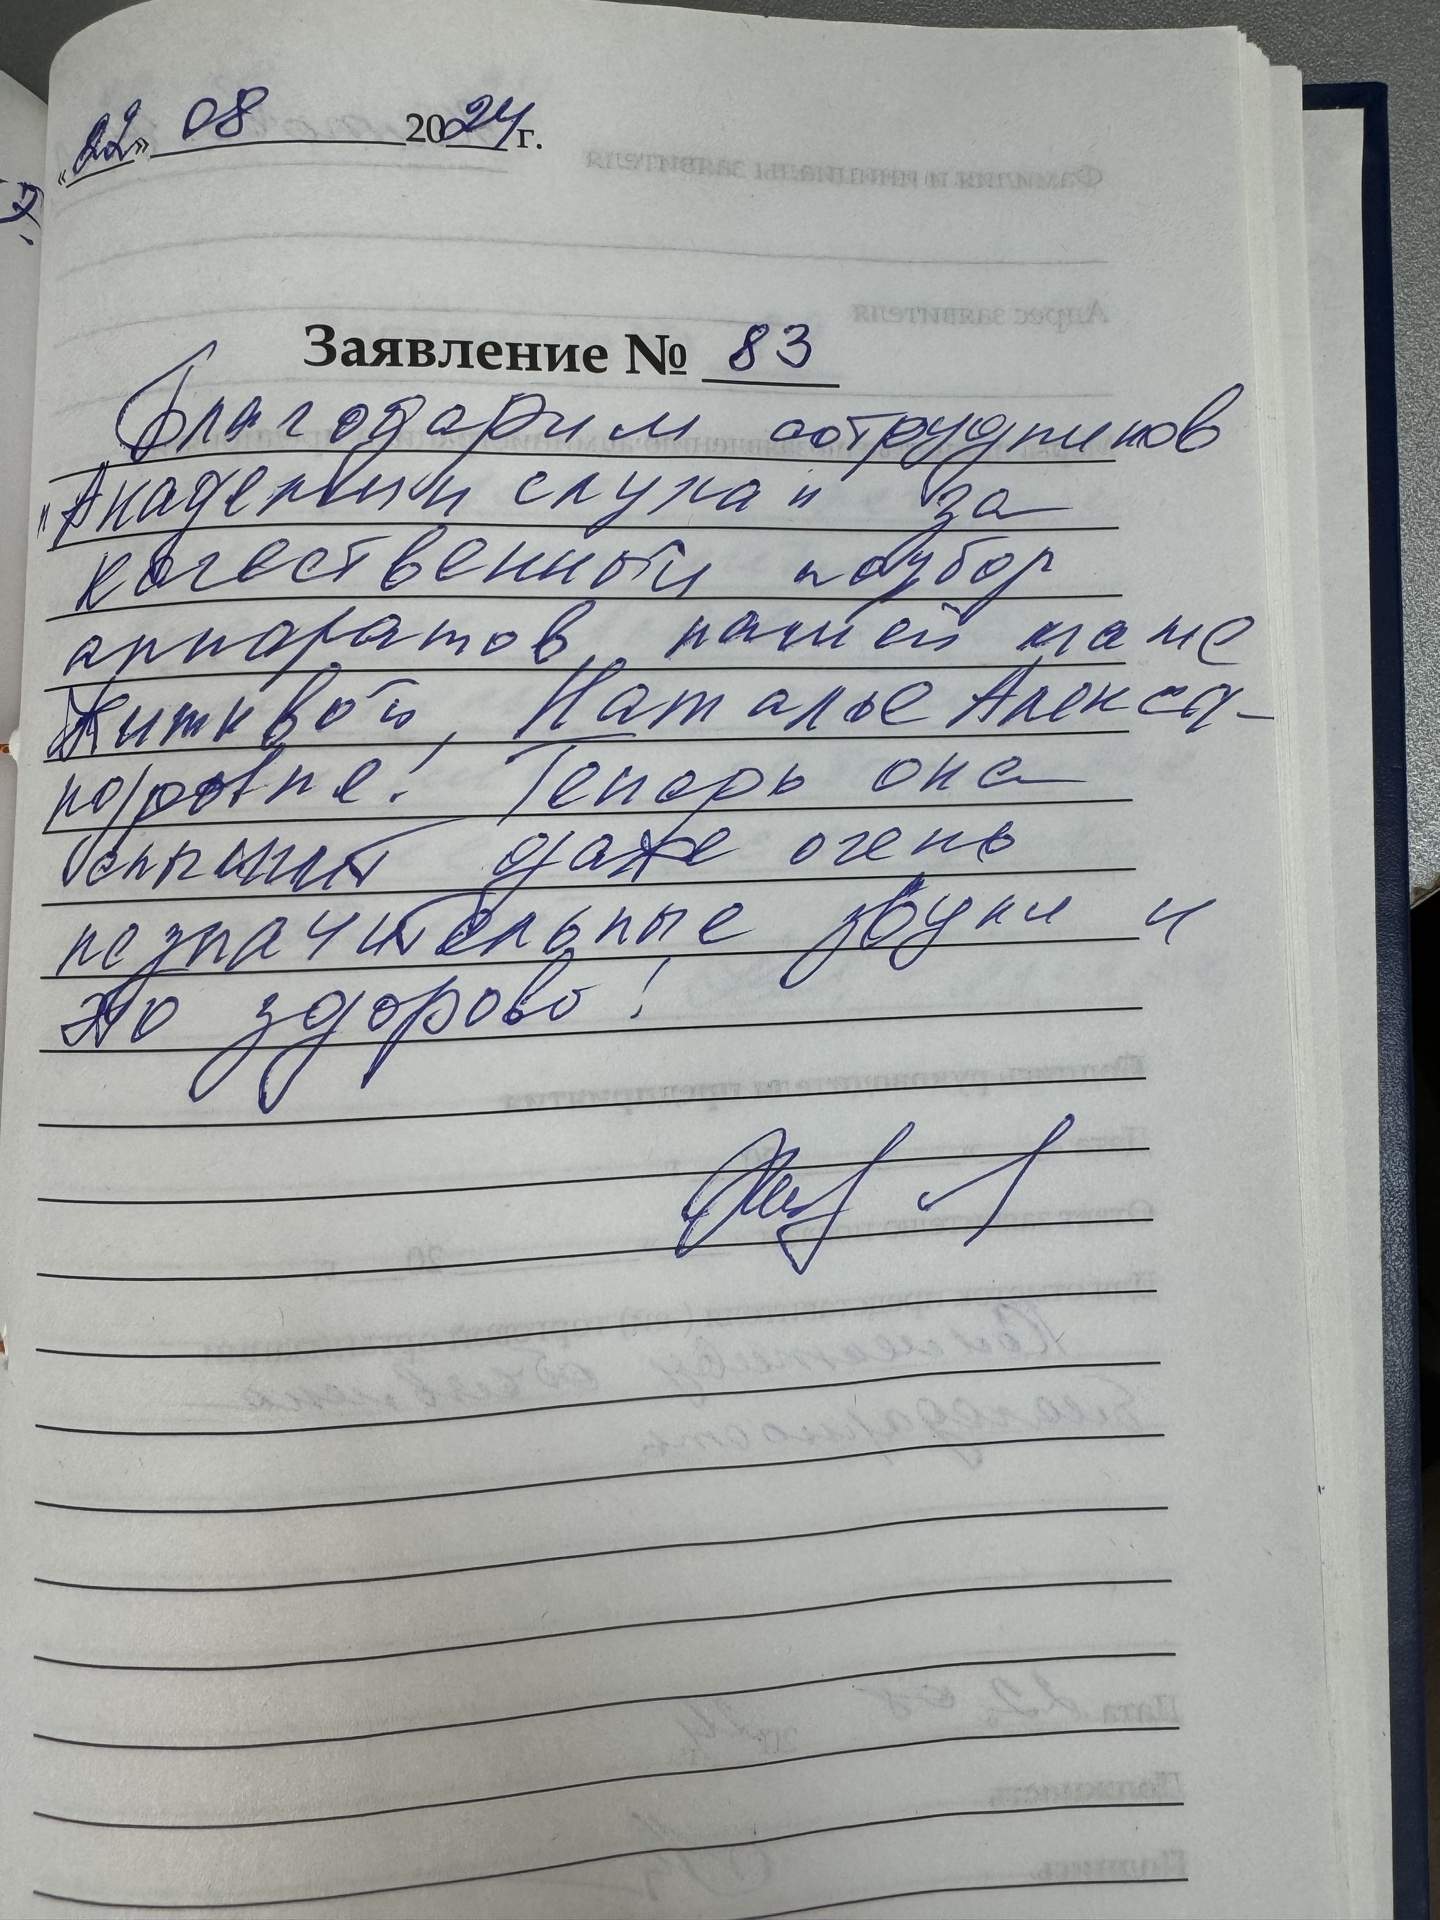 «22» 08 2024 г.
Заявление № 83
Благодарим сотрудников
"Академии слуха" за
качественный подбор
аппаратов нашей маме
Житквой, Наталье Алекса-
ндровне! Теперь она
слышит даже очень
незначительные звуки и
это здорово!